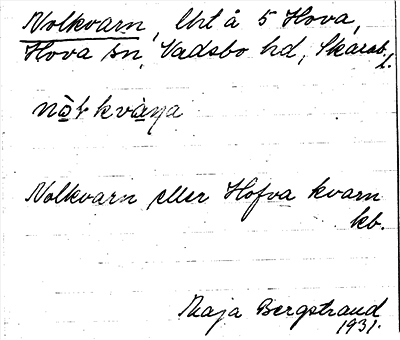 Nolkvarn, lht å 5 Hova,
Hova sn, Vadsbo hd, Skarab. l.
Nolkvarn eller Hofva kvarn
kb.
Maja Bergstrand
1931.